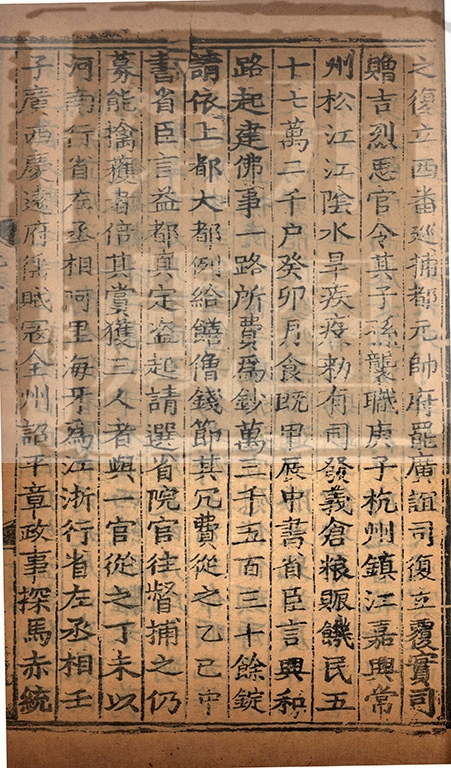 之復立西番巡捕都元帥府罷廣誼司復立覆實司
贈吉烈思官令其子孫襲職庚子杭州鎮江嘉興常
州松江江陰水旱疾疫勑有司發義倉粮賑饑民五
十七萬二千户癸卯月食旣甲辰中書省臣言興和
路起建佛事一路所費爲鈔萬三千五百三十餘錠
請依上都大都例給饍僧錢節其冗費從之乙巳中
書省臣言益都真定盗起請選省院官往督捕之仍
募能擒獲者倍其賞獲三人者與一官從之丁未以
河南行省左丞相阿里海牙爲江浙行省左丞相壬
子廣西慶遠府猺賊寇全州詔平章政事探馬赤統